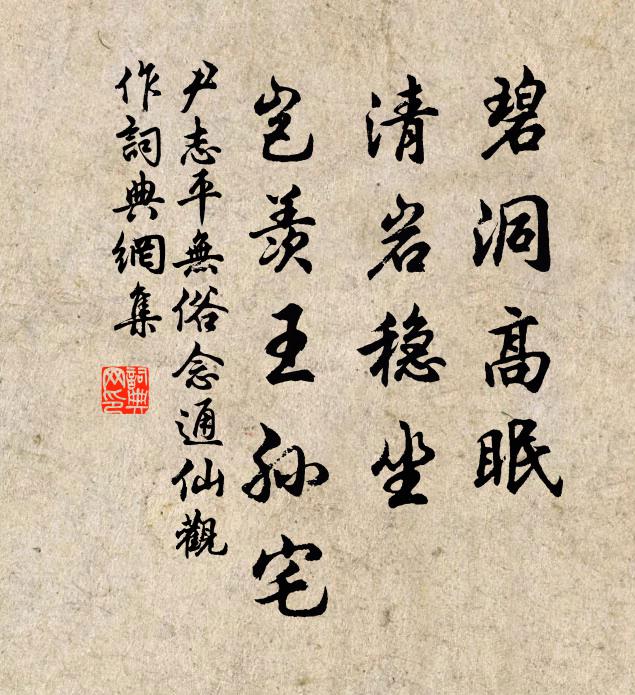 碧洞高眠
清岩稳坐
岂羡王孙宅
尹志平無俗念通仙觀
作詞典網集
詞典網印